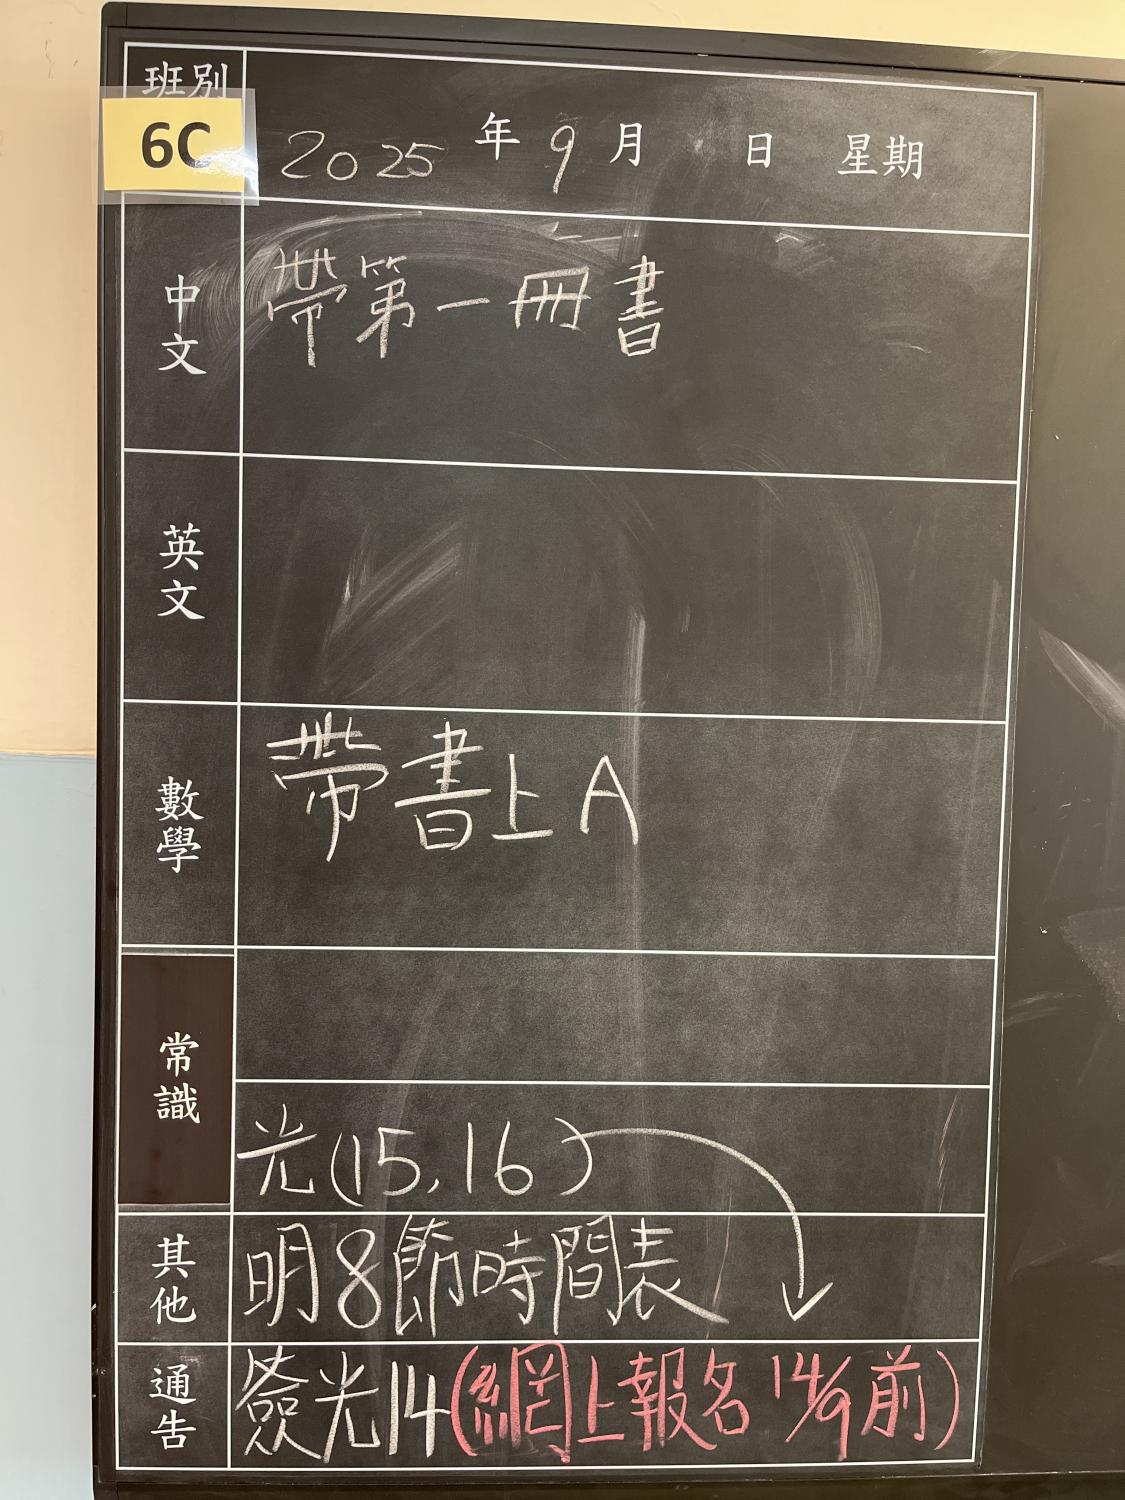 班別
6C
2025年9月 日 星期
中文 帶第一冊書
英文
數學 帶書上A
常識
光(15,16)
其他 明8節時間表
通告 簽光14(網上報名14/9前)